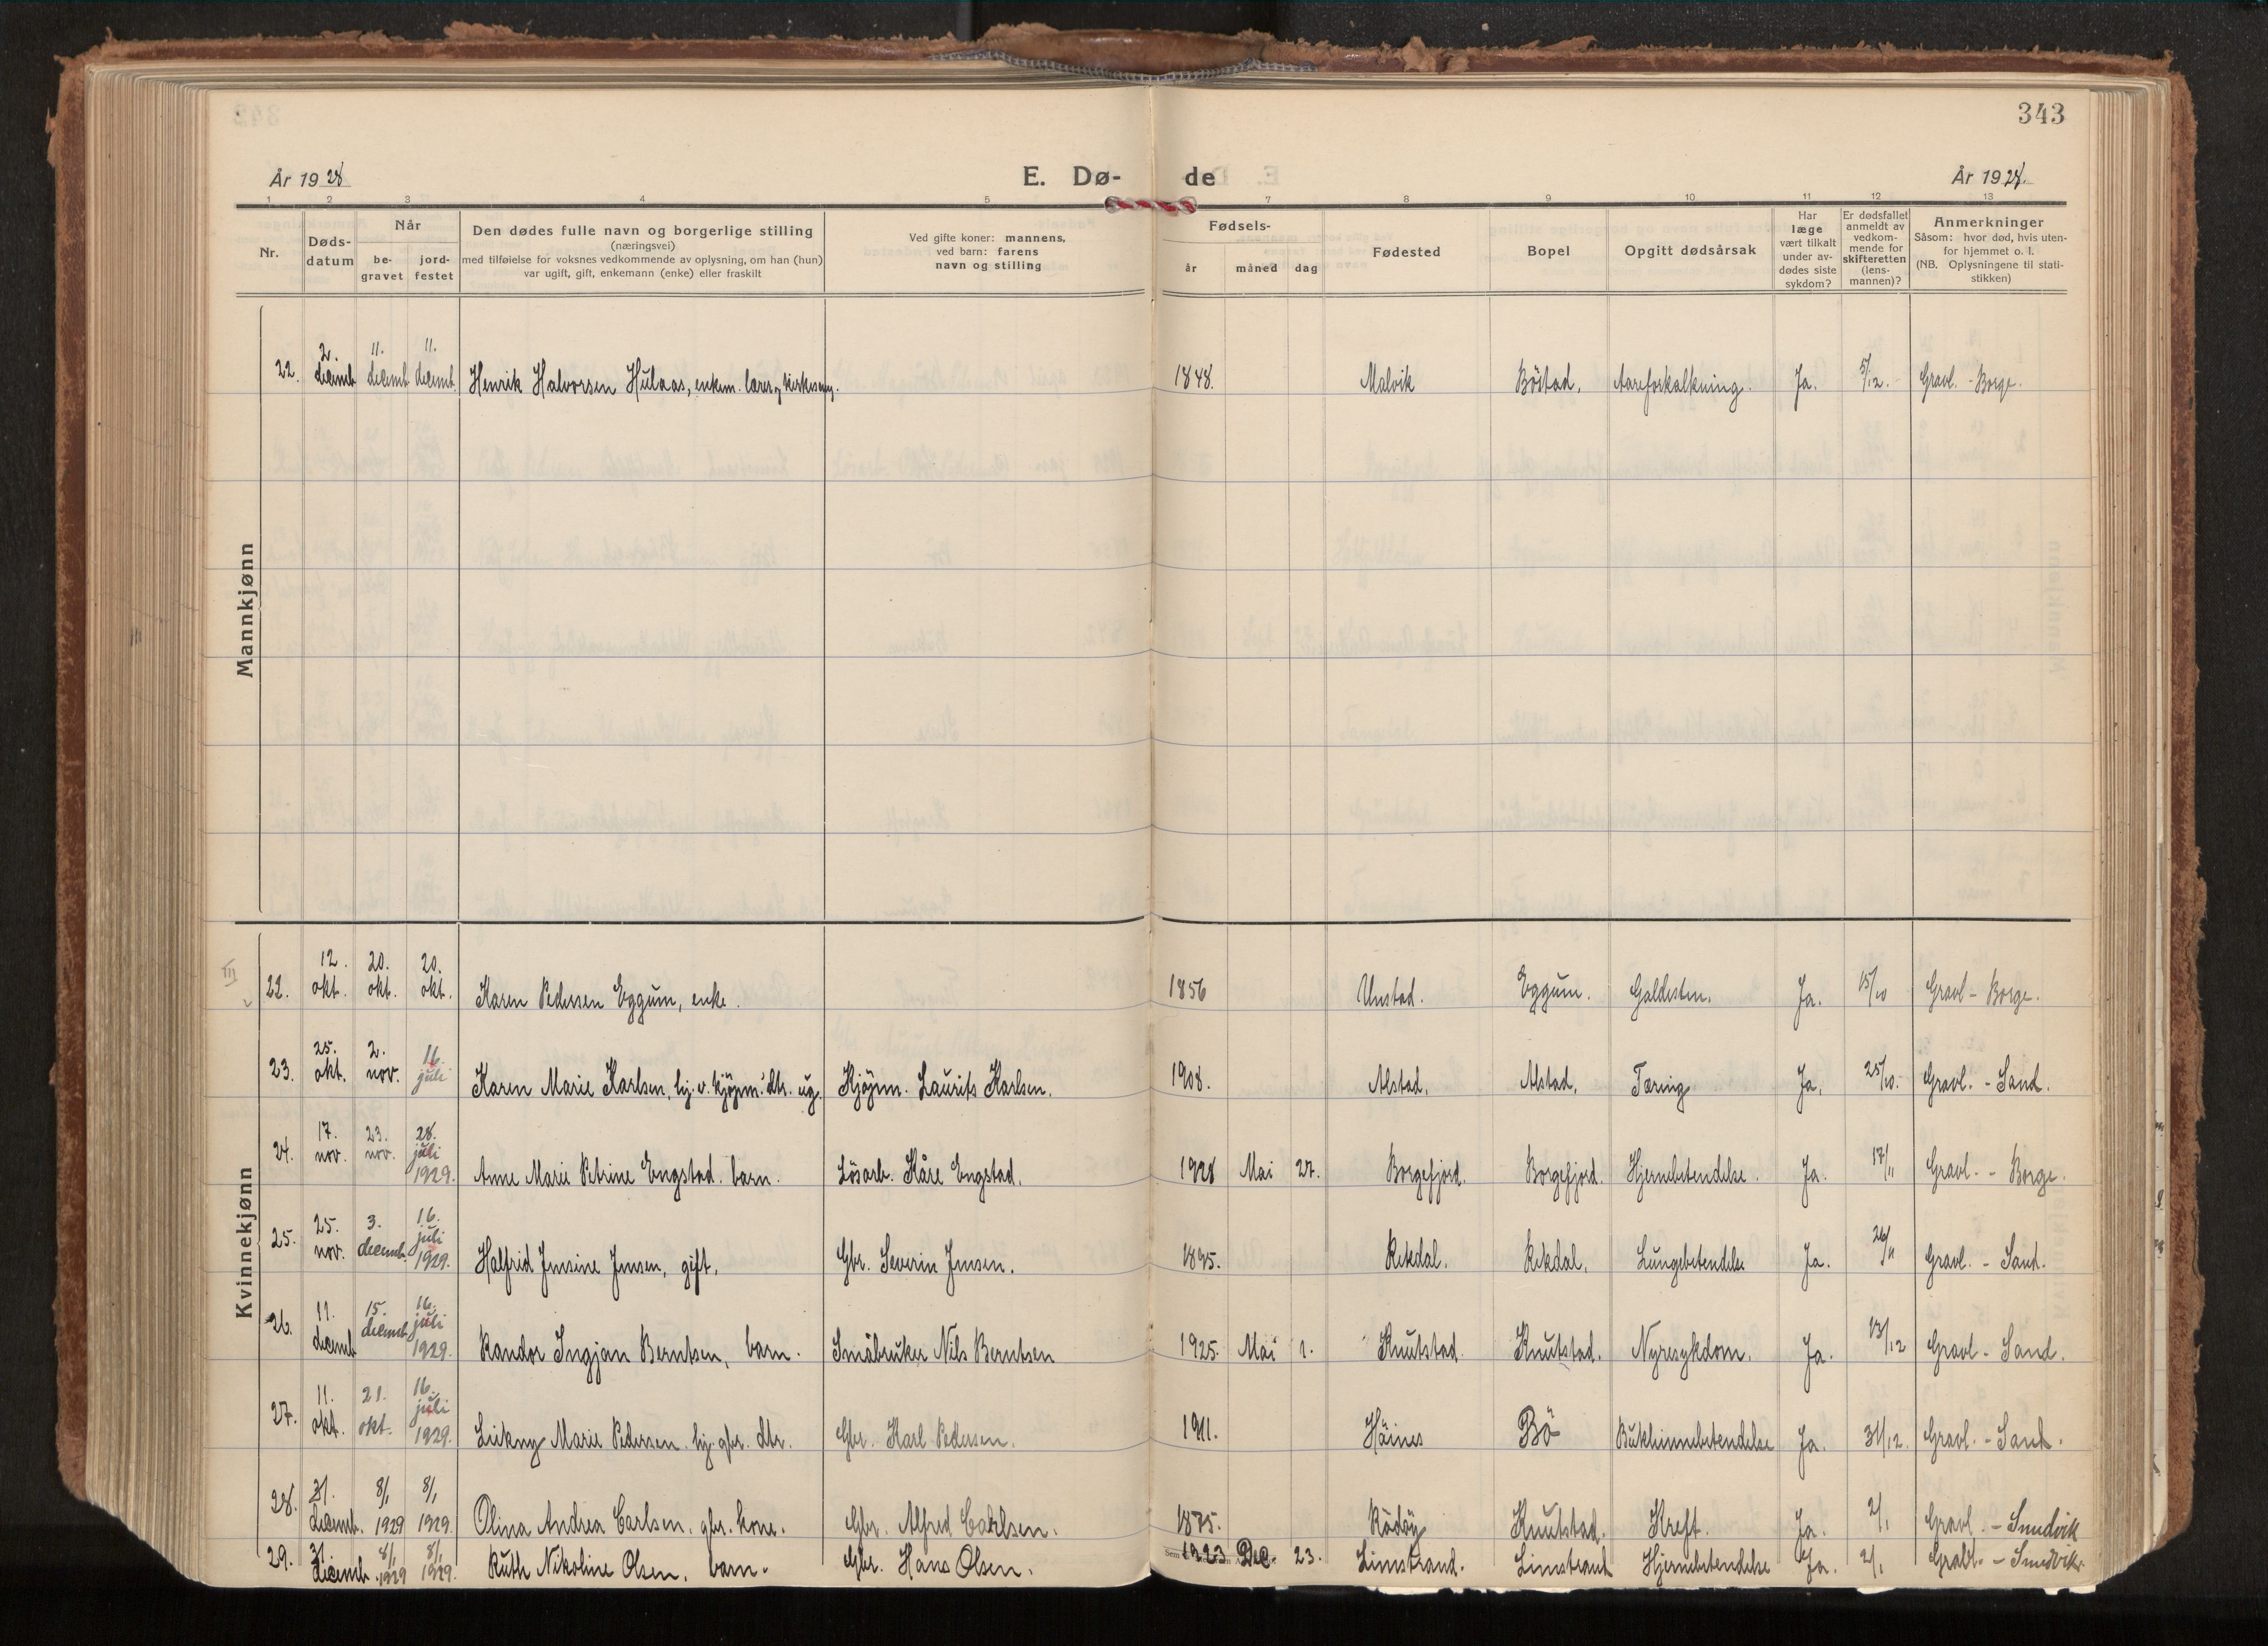 343
År 1928
E. Dø-
de
År 1928.
1 2 3 4 5 7 8 9 10 11 12 13
Nr.
Døds-
datum
Når
be-
gravet
jord-
festet
Den dødes fulle navn og borgerlige stilling
(næringsvei)
med tilføielse for voksnes vedkommende av oplysning, om han (hun)
var ugift, gift, enkemann (enke) eller fraskilt
Ved gifte koner: mannens,
ved barn: farens
navn og stilling
Fødsels-
år måned dag
Fødested
Bopel
Opgitt dødsårsak
Har
læge
vært tilkalt
under av-
dødes siste
sykdom?
Er dødsfallet
anmeldt av
vedkom-
mende for
skifteretten
(lens-
mannen)?
Anmerkninger
Såsom: hvor død, hvis uten-
for hjemmet o. l.
(NB. Oplysningene til stati-
stikken)
Mannkjønn
2. 11. 11.
22. decemb. decemb. decemb. Henrik Halvorsen Hulaas, enkem. lærer og kirkesang. 1848. Malvik Böstad. Aareforkalkning. Ja. 5/12. Gravl. - Borge.
Kvinnekjønn
III
12. 20. 20.
22. okt. okt. okt. Karen Pedersen Eggum, enke. 1856 Unstad. Eggum. Galdesten. Ja. 15/10 Gravl - Borge.
25. 2. 16.
23. okt. nov. juli Karen Marie Karlsen, hj. v. kjøpm. dtr. ug. Kjøpm. Laurits Karlsen. 1908. Alstad. Alstad. Tæring Ja. 25/10. Gravl. - Sand.
17. 23. 28.
24. nov. nov. juli
1929. Anne Marie Petrine Engstad. barn. Lösarb. Kåre Engstad. 1928 Mai 27. Borgefjord. Borgefjord. Hjernebetendelse. Ja. 17/11 Gravl. - Borge.
25. 3. 16.
25. nov. decemb. juli
1929. Halfrid Jensine Jensen, gift. Gbr. Severin Jensen. 1895. Rekdal. Rekdal. Lungebetendelse Ja. 26/11 Gravl. - Sand.
11. 15. 16.
26. decemb. decemb. juli
1929. Randor Ingjan Berntsen, barn. Småbruker Nils Berntsen 1925. Mai 1. Knutstad. Knutstad. Nyresykdom. Ja. 13/12 Gravl - Sand.
11. 21. 16.
27. okt. okt. juli
1929. Marie Pedersen. hj. gbr. dtr. Gbr. Karl Pedersen. 1911. Häines Bö Bukhinnebetendelse Ja. 31/12. Gravl. - Sand.
31. 8/1 8/1
28. decemb. 1929 1929. Olina Andrea Carlsen. gbr. kone. Gbr. Alfred Carlsen. 1875. Rödöy Knutstad. Kreft. Ja. 2/1 Gravl. - Smedvik
31. 8/1 8/1
29. decemb. 1929 1929. Ruth Nikoline Olsen. barn. Gbr. Hans Olsen. 1923 Dec. 23. Limstrand. Limstrand Hjernebetendelse Ja. 2/1 Gravl. - Smedvik.